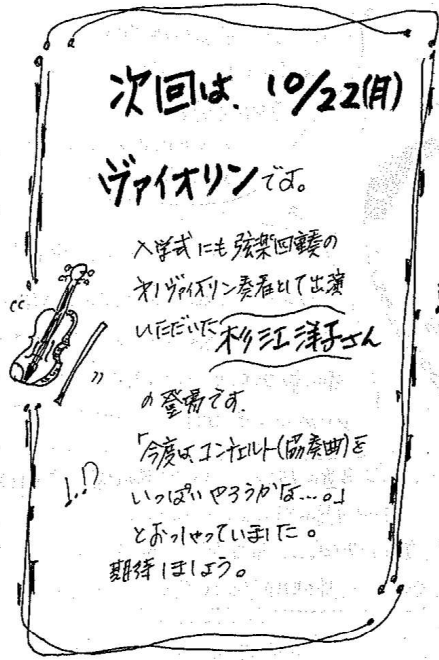 次回は、10/22(月)
ヴァイオリンです。
入学式にも弦楽四重奏の
才1ヴァイオリン奏者として出演
いただいた杉江洋子さん
の登場です。
「今度は、コンチェルト(協奏曲)を
いっぱいやろうかな…。」
とおっしゃっていました。
期待しましょう。